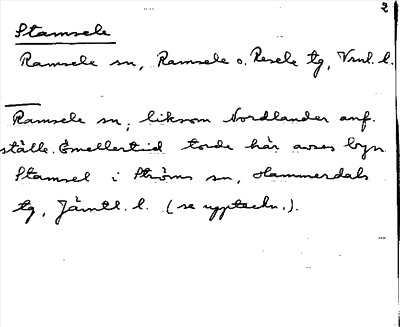 2
Stamsele
Ramsele sn, Ramsele o. Resele tg, Vrnl. l.
Ramsele sn; liksom Nordlander anf.
ställe. Emellertid torde här avses byn
Stamsel i Ströms sn, Hammerdals
tg, Jämtl. l. (se uppteckn.).